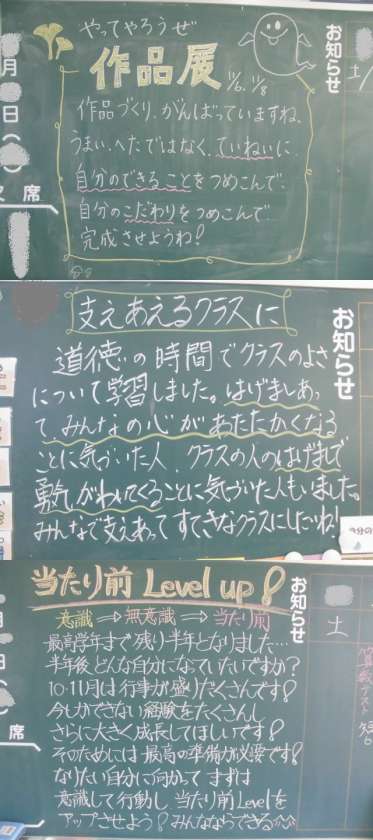 やってやろうぜ
作品展 11/6、11/8
作品づくり、がんばっていますね、
うまい、へたではなく、ていねいに
自分のできることをつめこんで、
自分のこだわりをつめこんで
完成させようね!
お知らせ
月
日
(
)
欠席
土
支えあえるクラスに
道徳の時間でクラスのよさ
について学習しました。はげましあっ
て、みんなの心があたたかくなる
ことに気づいた人、クラスの人のはげましで
勇気がわいてくることに気づいた人もいました。
みんなで支えあってすてきなクラスにしたいね!
お知らせ
当たり前 Level up!
意識⇒無意識⇒当たり前
最高学年まで残り半年となりました…
半年後どんな自分になっていたいですか?
10・11月は行事が盛りだくさんです!
今しかできない経験をたくさんし
さらに大きく成長してほしいです!
そのためには最高の準備が必要です!
なりたい自分に向かって まずは
意識して行動し、当たり前Levelを
アップさせよう!みんなならできる☆☆
お知らせ
月
日
席
土
算数テスト